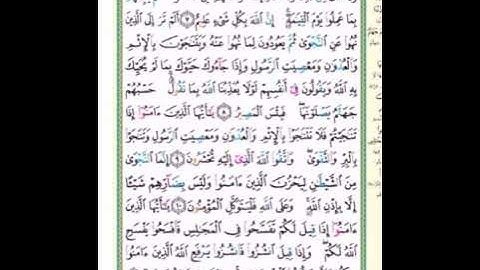 بِمَا عَمِلُوا۟ يَوْمَ ٱلْقِيَٰمَةِ ۚ إِنَّ ٱللَّهَ بِكُلِّ شَىْءٍ عَلِيمٌ ٧ أَلَمْ تَرَ إِلَى ٱلَّذِينَ
نُهُوا۟ عَنِ ٱلنَّجْوَىٰ ثُمَّ يَعُودُونَ لِمَا نُهُوا۟ عَنْهُ وَيَتَنَٰجَوْنَ بِٱلْإِثْمِ
وَٱلْعُدْوَٰنِ وَمَعْصِيَتِ ٱلرَّسُولِ وَإِذَا جَآءُوكَ حَيَّوْكَ بِمَا لَمْ يُحَيِّكَ
بِهِ ٱللَّهُ وَيَقُولُونَ فِىٓ أَنفُسِهِمْ لَوْلَا يُعَذِّبُنَا ٱللَّهُ بِمَا نَقُولُ ۚ حَسْبُهُمْ
جَهَنَّمُ يَصْلَوْنَهَا ۖ فَبِئْسَ ٱلْمَصِيرُ ٨ يَٰٓأَيُّهَا ٱلَّذِينَ ءَامَنُوٓا۟ إِذَا
تَنَٰجَيْتُمْ فَلَا تَتَنَٰجَوْا۟ بِٱلْإِثْمِ وَٱلْعُدْوَٰنِ وَمَعْصِيَتِ ٱلرَّسُولِ وَتَنَٰجَوْا۟
بِٱلْبِرِّ وَٱلتَّقْوَىٰ ۖ وَٱتَّقُوا۟ ٱللَّهَ ٱلَّذِىٓ إِلَيْهِ تُحْشَرُونَ ٩ إِنَّمَا ٱلنَّجْوَىٰ
مِنَ ٱلشَّيْطَٰنِ لِيَحْزُنَ ٱلَّذِينَ ءَامَنُوا۟ وَلَيْسَ بِضَآرِّهِمْ شَيْـًٔا
إِلَّا بِإِذْنِ ٱللَّهِ ۚ وَعَلَى ٱللَّهِ فَلْيَتَوَكَّلِ ٱلْمُؤْمِنُونَ ١٠ يَٰٓأَيُّهَا ٱلَّذِينَ
ءَامَنُوٓا۟ إِذَا قِيلَ لَكُمْ تَفَسَّحُوا۟ فِى ٱلْمَجَٰلِسِ فَٱفْسَحُوا۟ يَفْسَحِ
ٱللَّهُ لَكُمْ ۖ وَإِذَا قِيلَ ٱنشُزُوا۟ فَٱنشُزُوا۟ يَرْفَعِ ٱللَّهُ ٱلَّذِينَ ءَامَنُوا۟